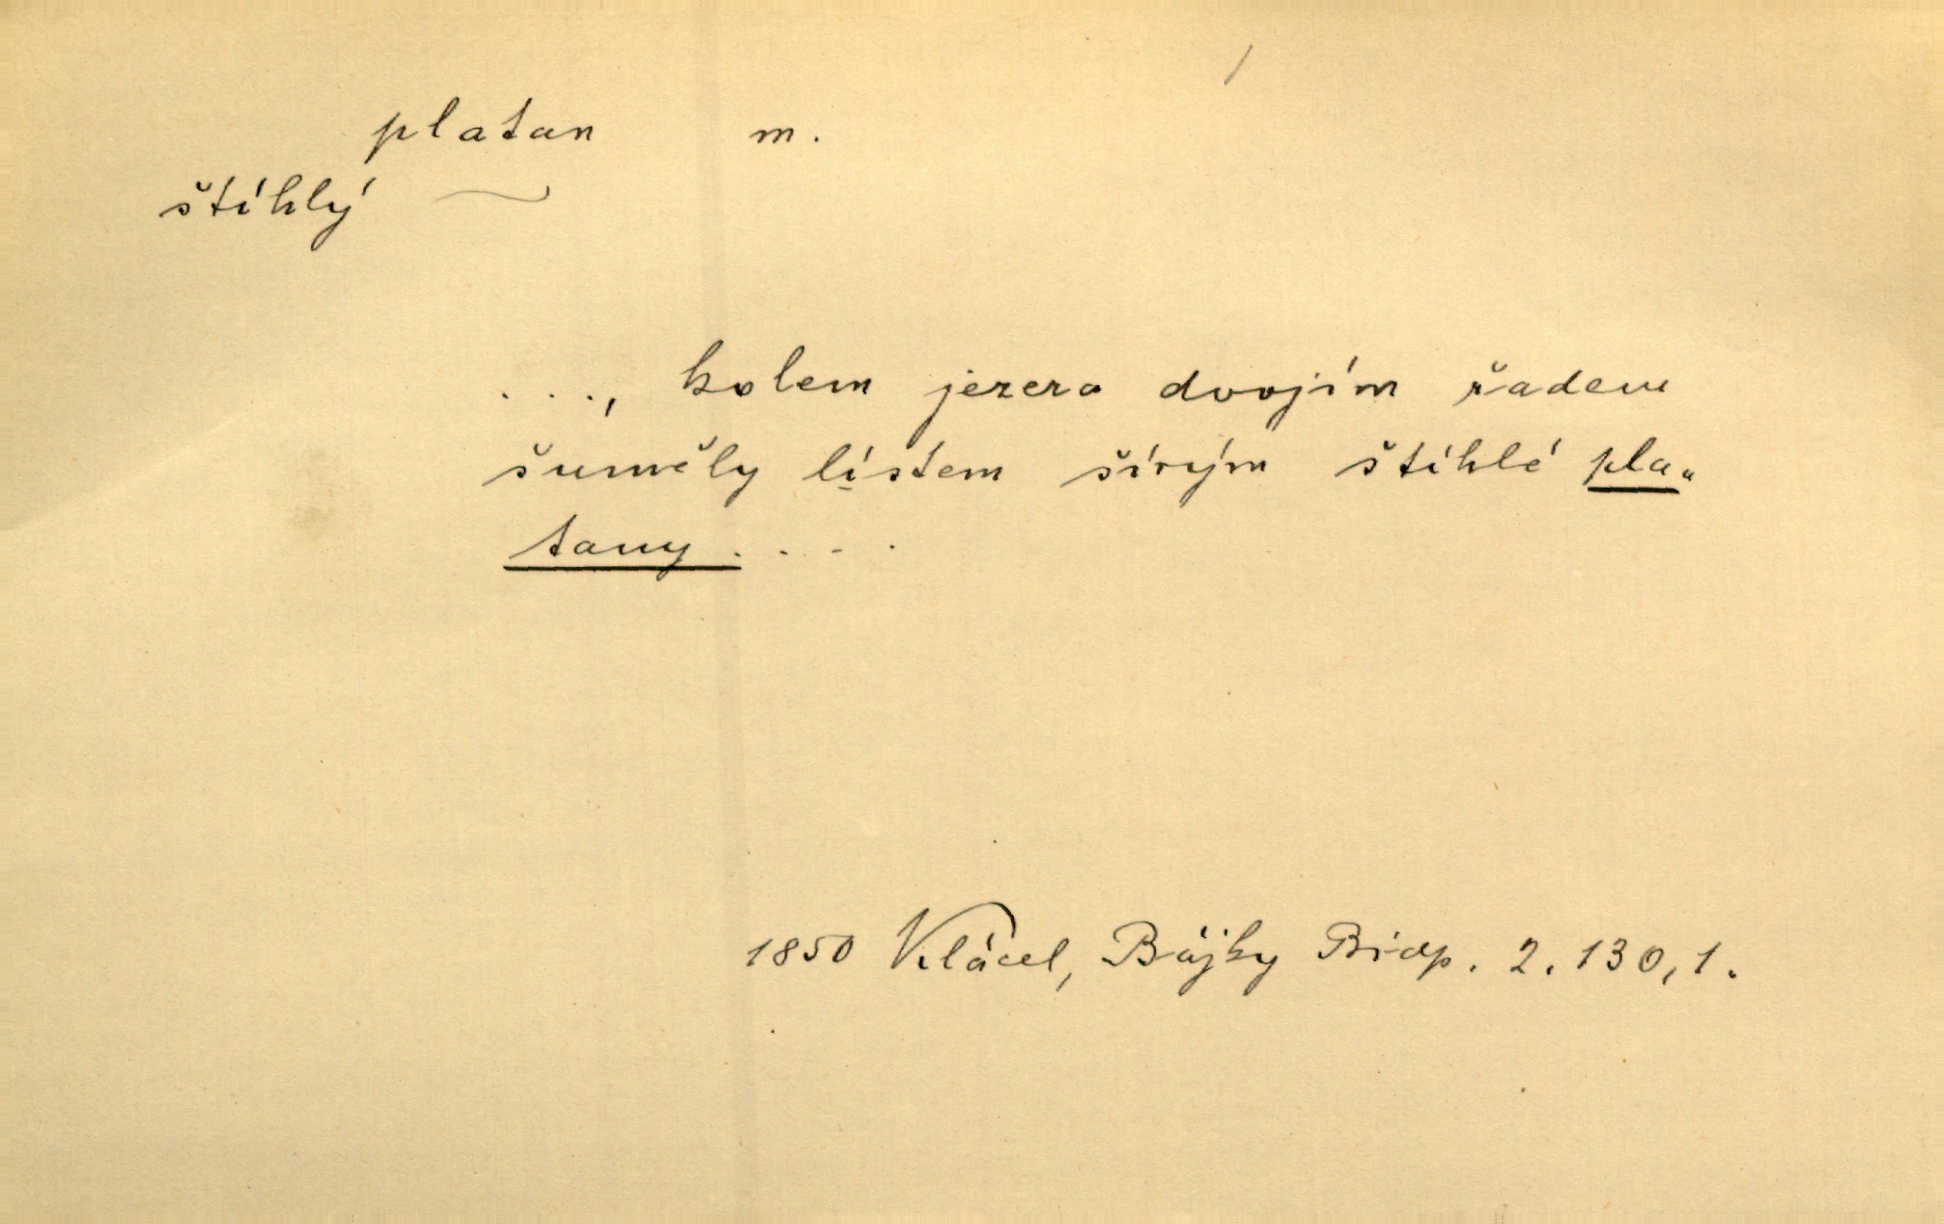 platan m.
štíhlý ~
. . ., kolem jezera dvojím řadem
šuměly lístem šírým štíhlé pla„
tany . . . .
1850 Klácel, Bájky Bidp. 2. 130, 1.